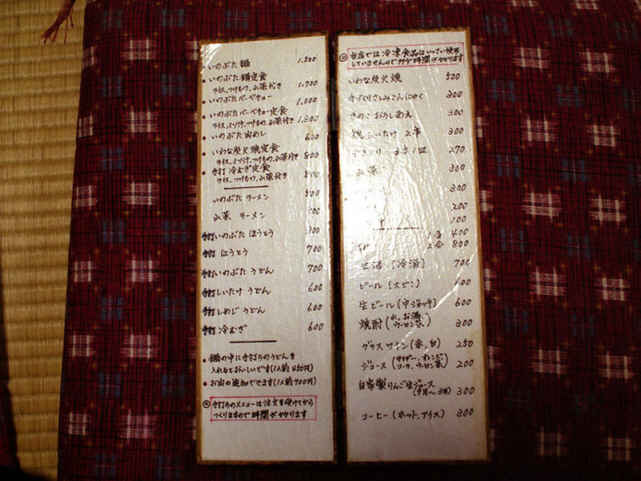 いのぶた鍋 1,500
いのぶた鍋定食
ライス,つけもの,山菜付き 1,700
いのぶたバーベキュー 1,000
いのぶたバーベキュー定食
つけもの,山菜付き 1,200
いのぶた 600
いわな炭火焼定食
つけもの,山菜付き 800
手打 冷むぎ定食
ライス,つけもの,山菜付き 800
いのぶたラーメン
山菜ラーメン
手打 いのぶた ほうとう
手打 ほうとう 700
手打 いのぶた うどん 700
手打 しいたけ うどん 600
手打 しめじ うどん 600
手打 冷むぎ 600
鍋の中に手打ちのうどんを
入れてもおいしいです
お肉の追加できます(1人前700円)
手打ちのメニューは注文を受けてから
つくりますので時間がかかります
当店では冷凍食品はいっさい使用
していませんので 時間がかかります
いわな炭火焼 500
手づくりさしみこんにゃく 300
きのこおろしあえ 300
焼しいたけ 300
270
山菜 300
300
200
100
1合 400
2合 800
生酒(冷酒) 700
ビール(大ビン) 600
生ビール(中ジョッキ) 600
焼酎(水,お湯,ウーロン茶) 300
グラスワイン(赤,白) 250
ジュース(サイダー,オレンジ
コーラ,ウーロン茶) 200
自家製りんご生ジュース 300
コーヒー(ホット,アイス) 300